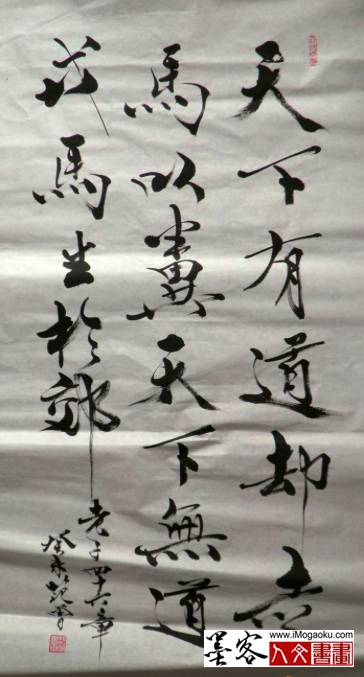 天下有道却走
馬以糞天下無道
戎馬生於郊
老子四十六章
癸未
墨客
www.iMogaoku.com
人文書畫